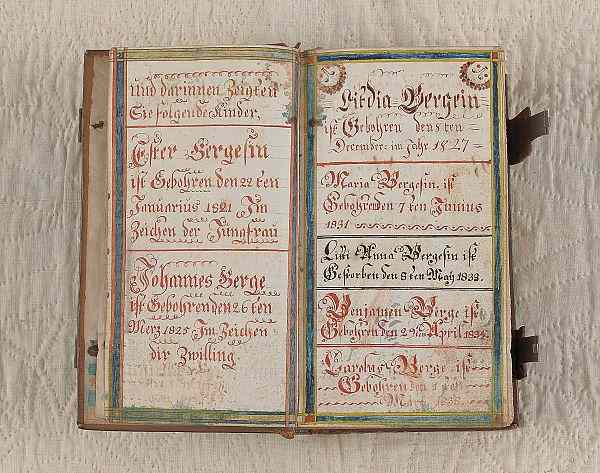 Und darinnen Zeigten
Sie folgende Kinder.
Ester Bergesin
ist Gebohren den 22 ten
Januarius 1821 Im
Zeichen der Jungfrau
Johannes Berge
ist Gebohren den 26 ten
Merz 1825 Im Zeichen
der Zwilling
Lidia Bergein
ist Gebohren den 8 ten
December im Jahr 1827
Maria Bergesin ist
Gebohren den 7 ten Junius
1831
Anna Bergesin ist
Gestorben den 8 ten May 1833.
Benjamen Berge ist
Gebohren den April 1834.
Berge ist
Gebohren den